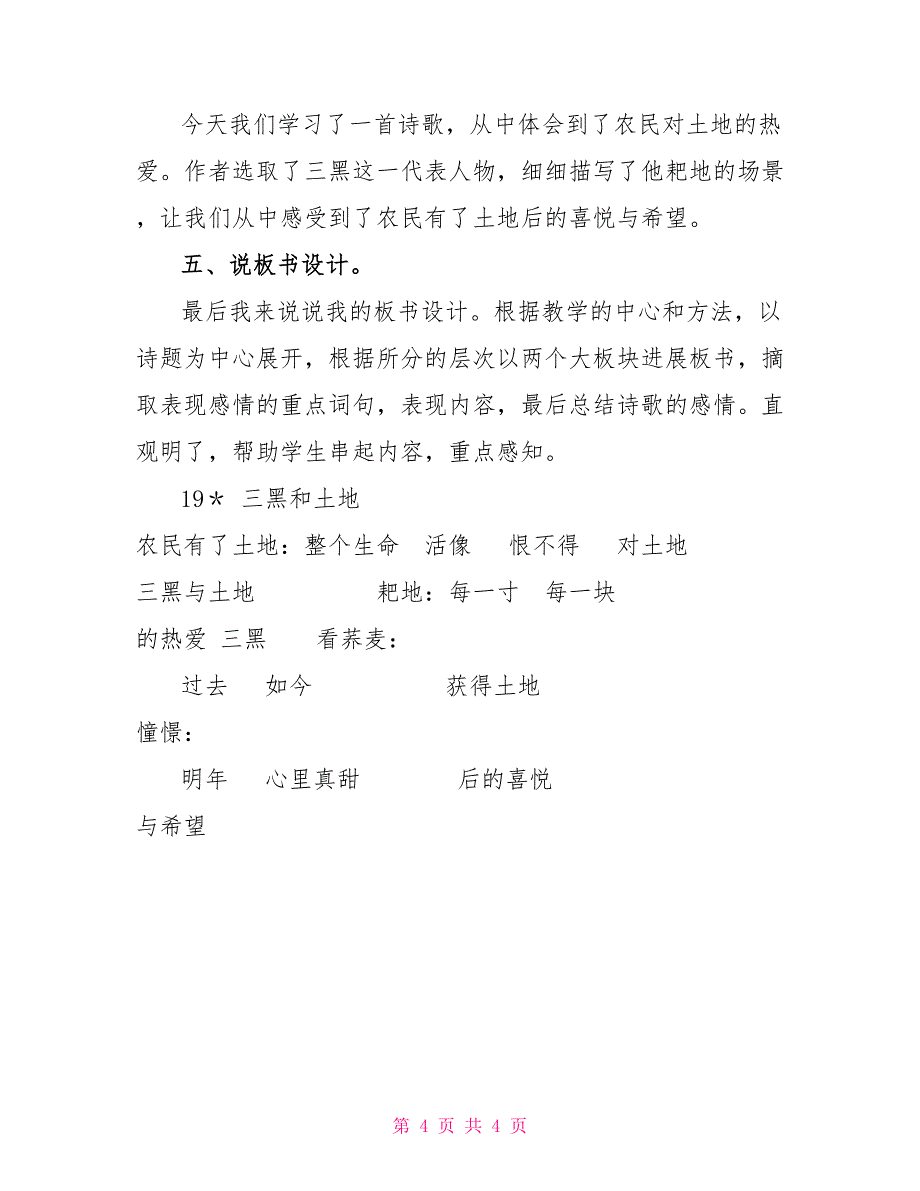 今天我们学习了一首诗歌，从中体会到了农民对土地的热
爱。作者选取了三黑这一代表人物，细细描写了他耙地的场景
，让我们从中感受到了农民有了土地后的喜悦与希望。
五、说板书设计。
最后我来说说我的板书设计。根据教学的中心和方法，以
诗题为中心展开，根据所分的层次以两个大板块进展板书，摘
取表现感情的重点词句，表现内容，最后总结诗歌的感情。直
观明了，帮助学生串起内容，重点感知。
19＊ 三黑和土地
农民有了土地：整个生命 活像 恨不得 对土地
三黑与土地 耙地：每一寸 每一块
的热爱 三黑 看荞麦：
过去 如今 获得土地
憧憬：
明年 心里真甜 后的喜悦
与希望
第 4 页 共 4 页